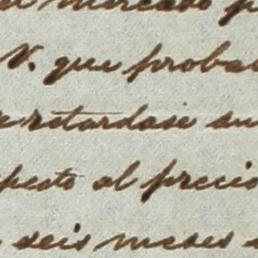 mercado p
V. que probab
retardase su
pecto al precio
seis meses